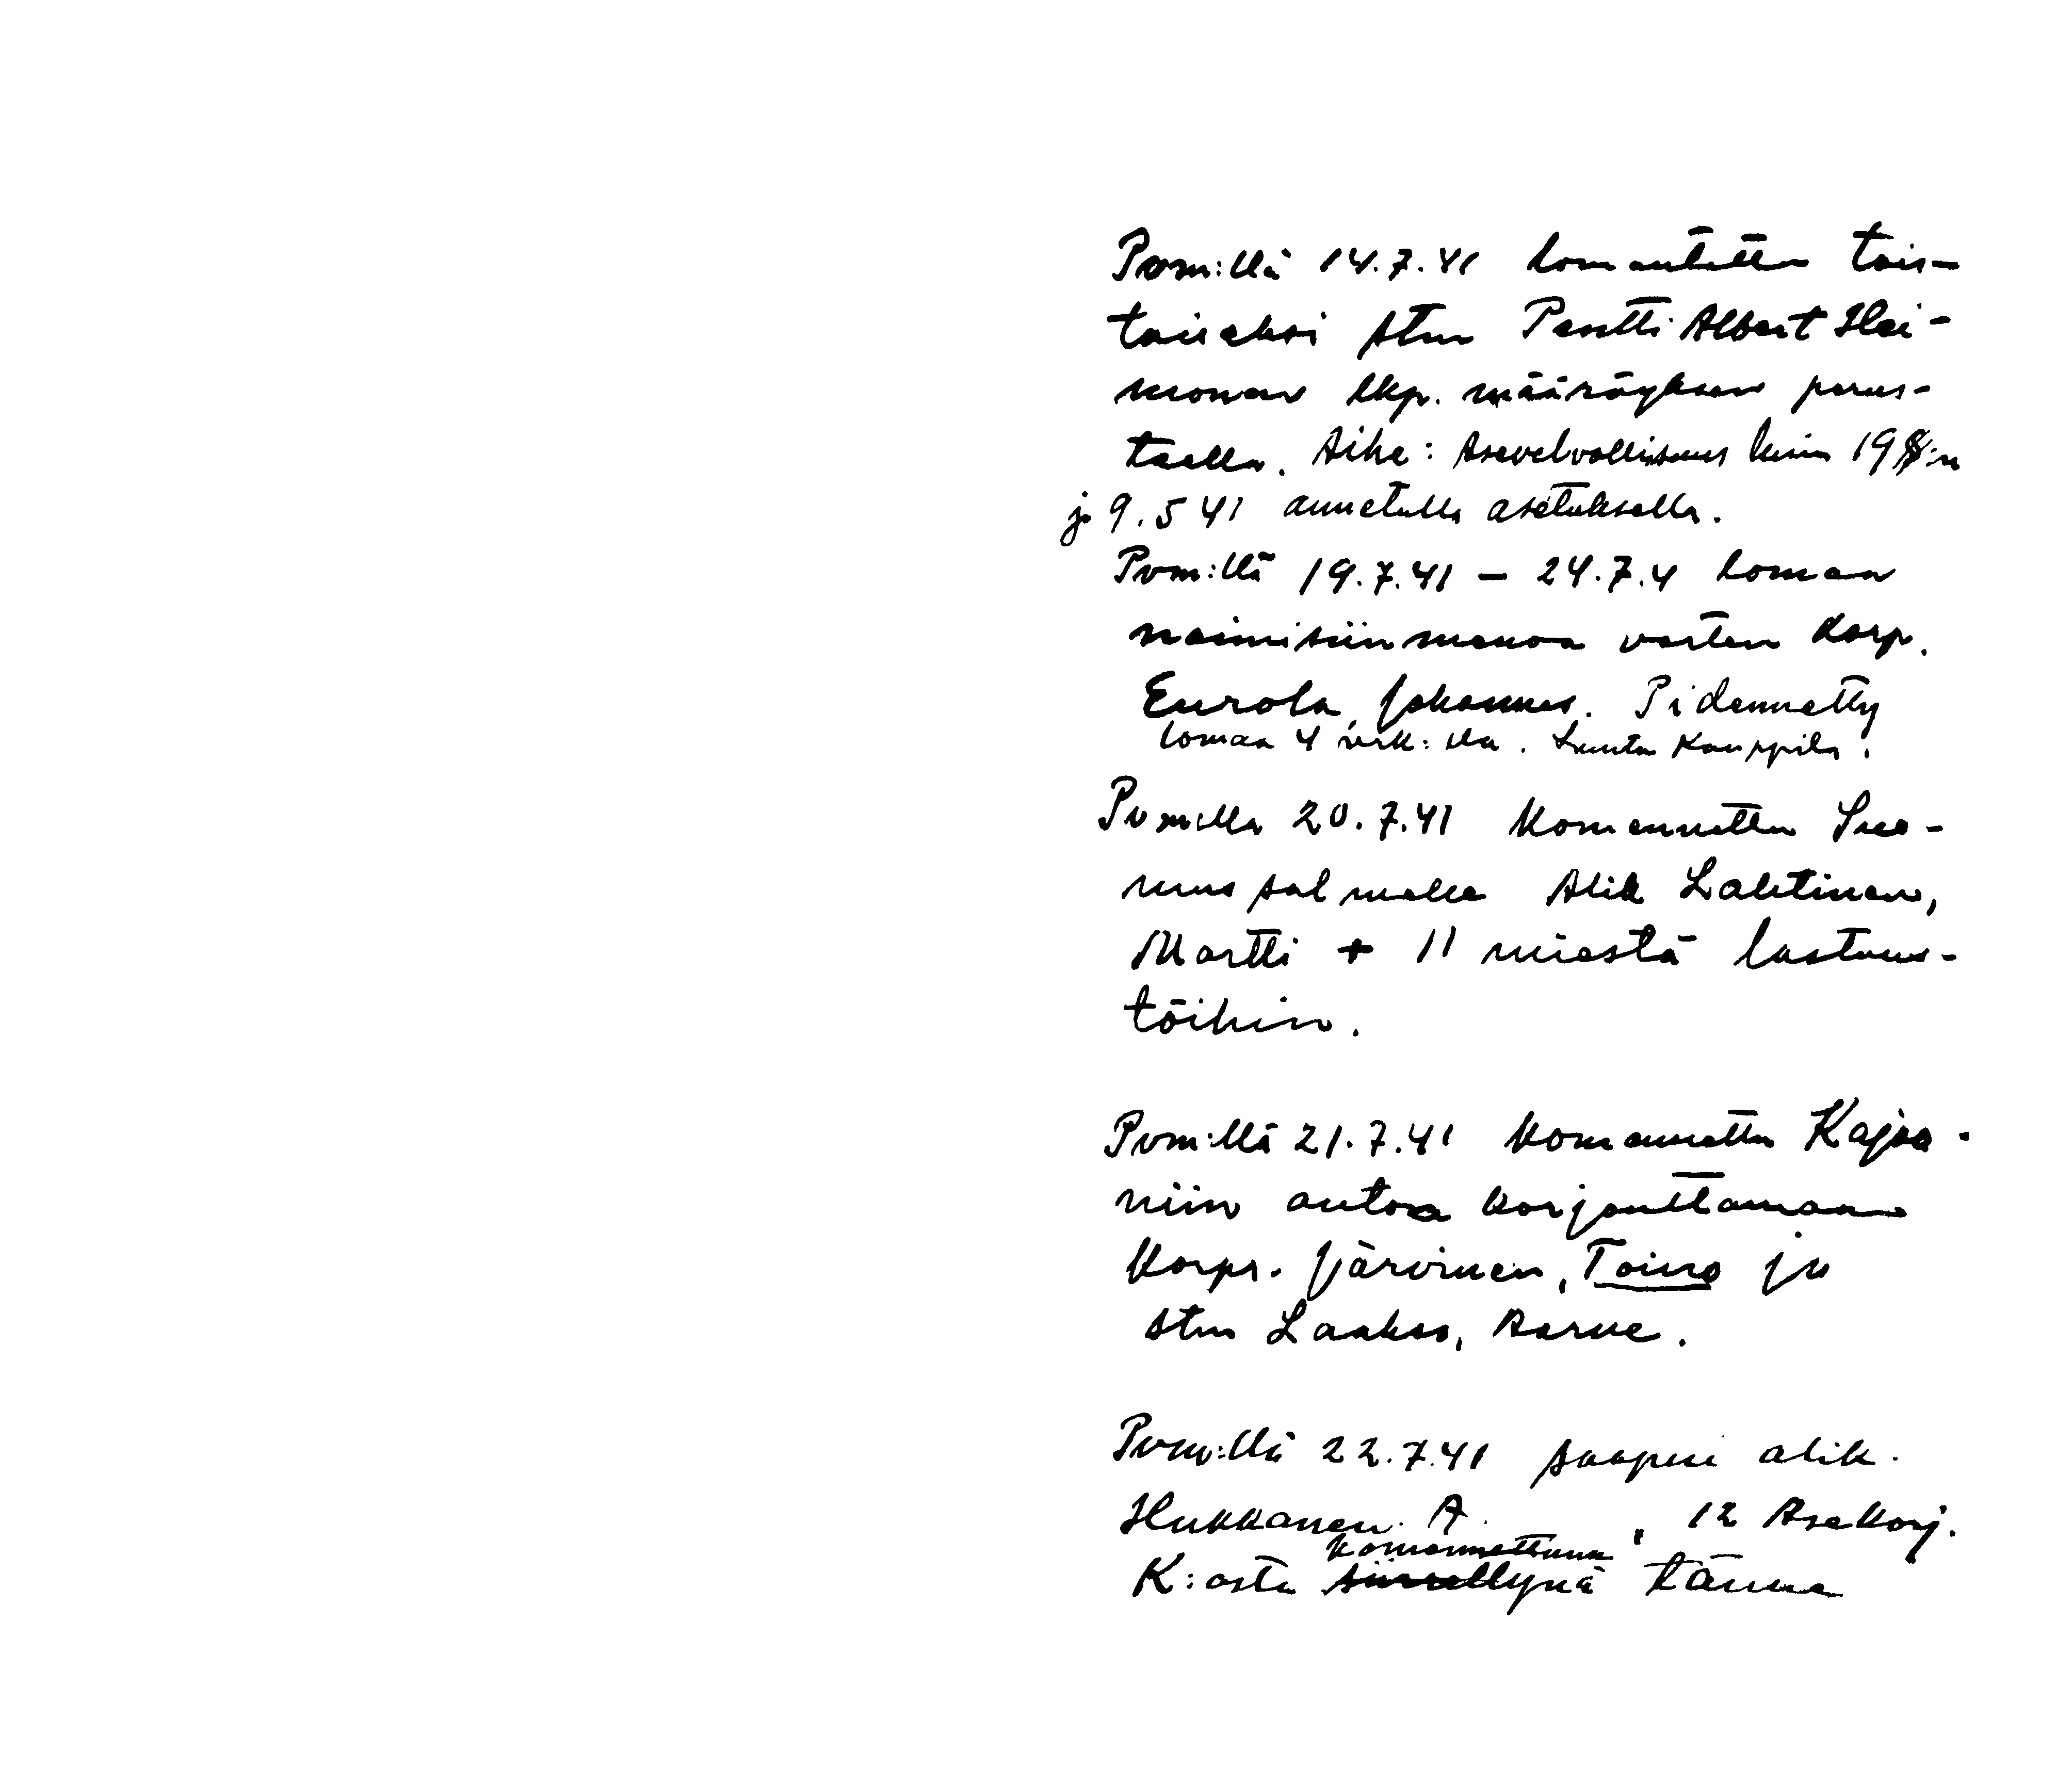 Pvm:llä 14.7.41 lomautettu tois-
taiseksi stm Pentti Albert Hei-
nonen lkp. määräyksen perus-
teella. Aihe: Asevelvollisuus lain 19 §:n
ja 9.5 41 annetulla asetuksella.
Pvm:llä 19.7.41 - 24.7.4 loman
naimisiinmenoa varten Korp.
Eurola, Johannes. Pidennetty
lomaa 4 vrk:lla. Luutn Kauppila.
Pvm:lla 20.7.41 Komennettu Suo-
mussalmelle Alik Lahtinen,
Martti + 11 miestä lastaus-
töihin.
Pvm:llä 21.7.41 Komennettu Kajaa-
niin autoa korjauttamaan
Korpr. Järvinen, Toivo ja
stm Laakso, Aarne.
Pvm:llä 22.7.41 saapui alik.
Hukkanen A. , 12 Asekorj.
komennettuna
K:osta siirrettynä tänne